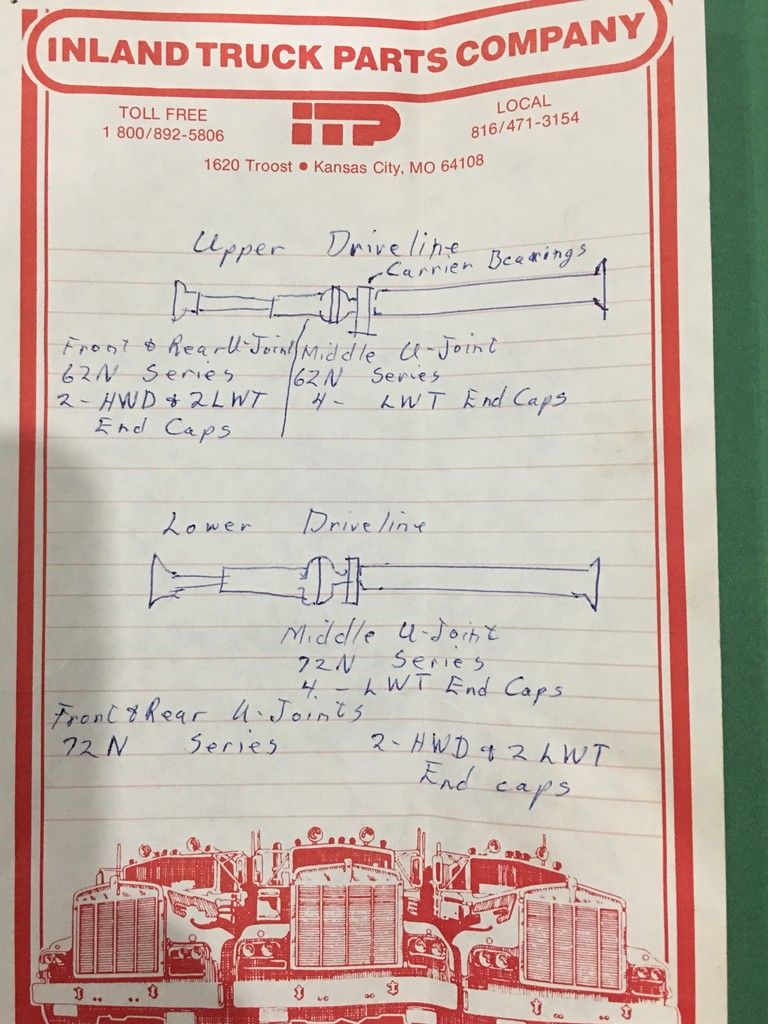 INLAND TRUCK PARTS COMPANY
TOLL FREE
1 800/892-5806
ITP
LOCAL
816/471-3154
1620 Troost • Kansas City, MO 64108
Upper Driveline
Carrier Bearings
Front & Rear U-Joint
62N Series
2-HWD & 2LWT
End Caps
Middle U-Joint
62N Series
4- LWT End Caps
Lower Driveline
Middle U-Joint
72N Series
4. - LWT End Caps
Front & Rear U-Joints
72N Series 2-HWD & 2 LWT
End caps